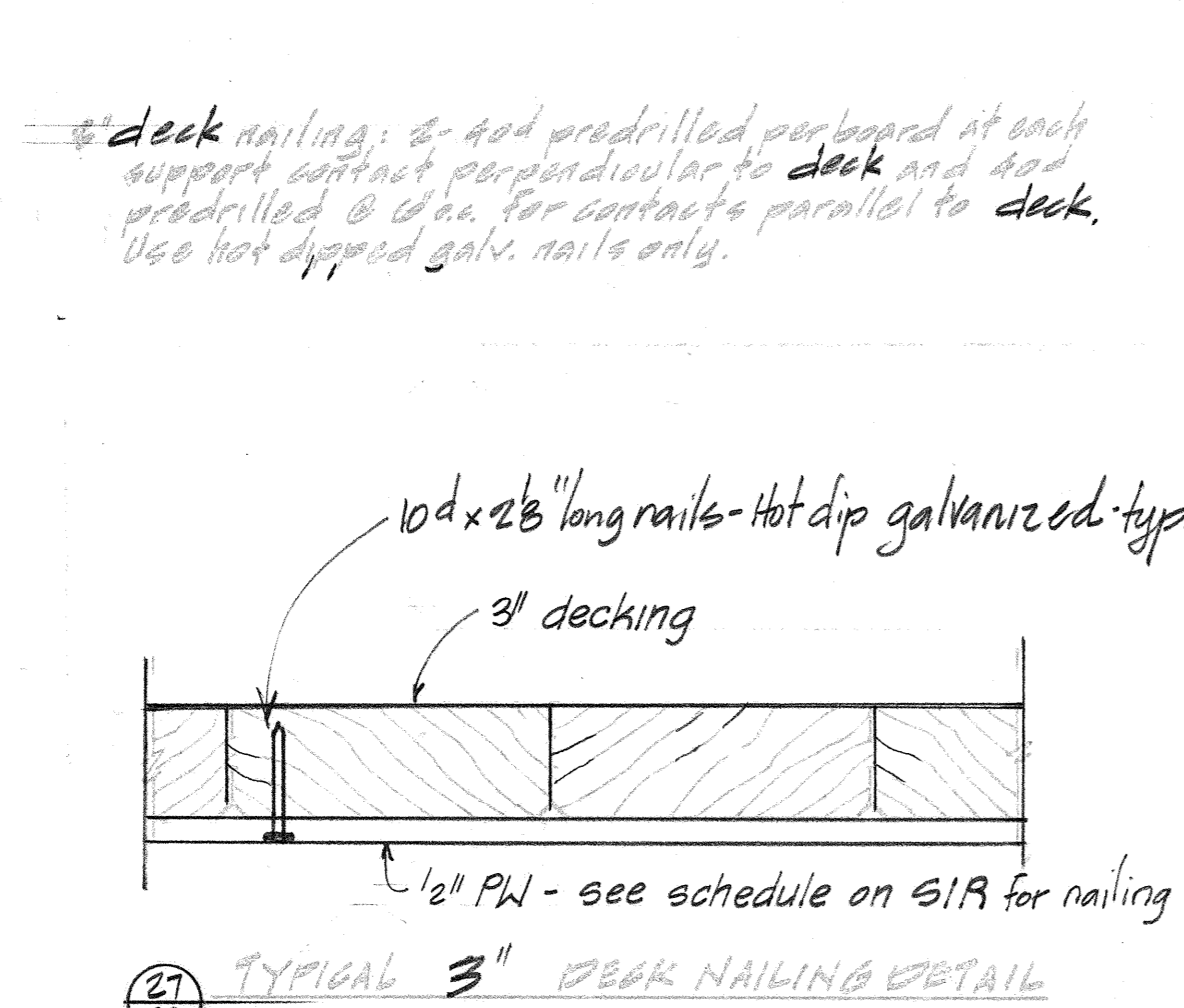 deck nailing: 2- 40d predrilled per board at each
support contact perpendicular to deck and 40d
predrilled @ o.c. for contacts parallel to deck.
Use hot dipped galv. nails only.
10d x 2 1/8" long nails - Hot dip galvanized · typ
3" decking
1/2" PW - see schedule on S1R for nailing
27
TYPICAL 3" DECK NAILING DETAIL